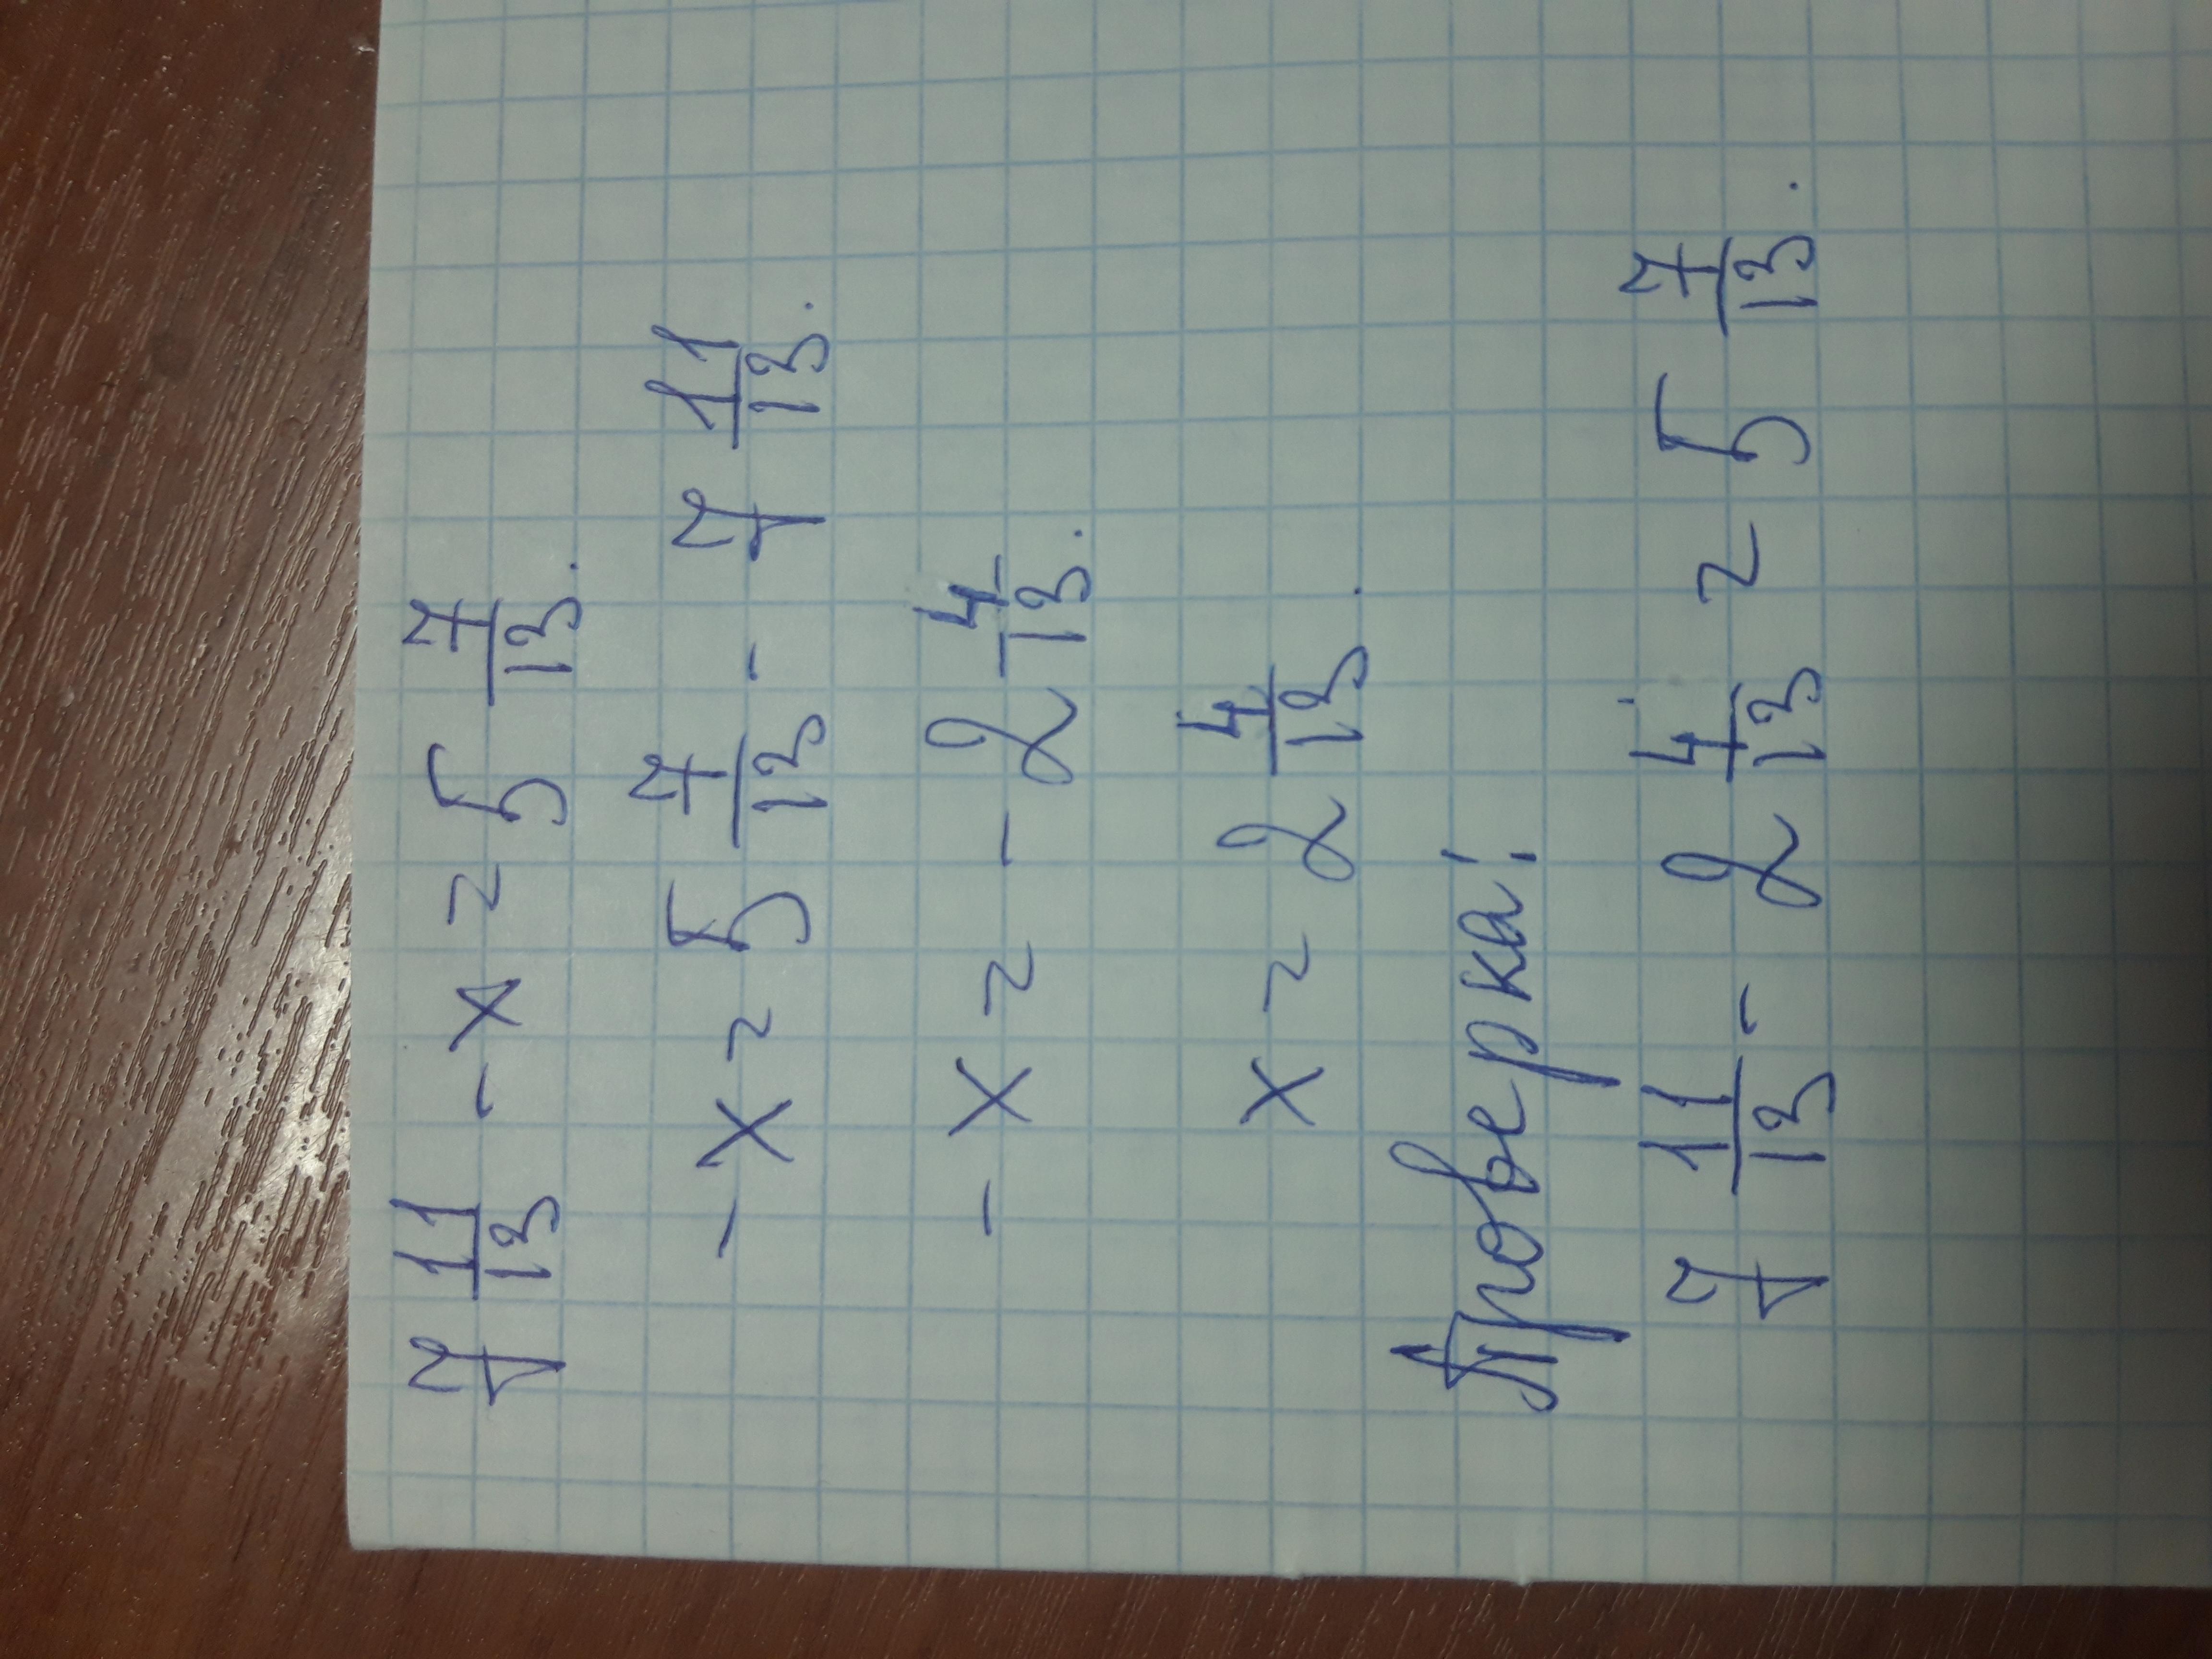 7 11/13 - x = 5 7/13.
- x = 5 7/13 - 7 11/13.
- x = - 2 4/13.
x = 2 4/13.
Проверка:
7 11/13 - 2 4/13 = 5 7/13.